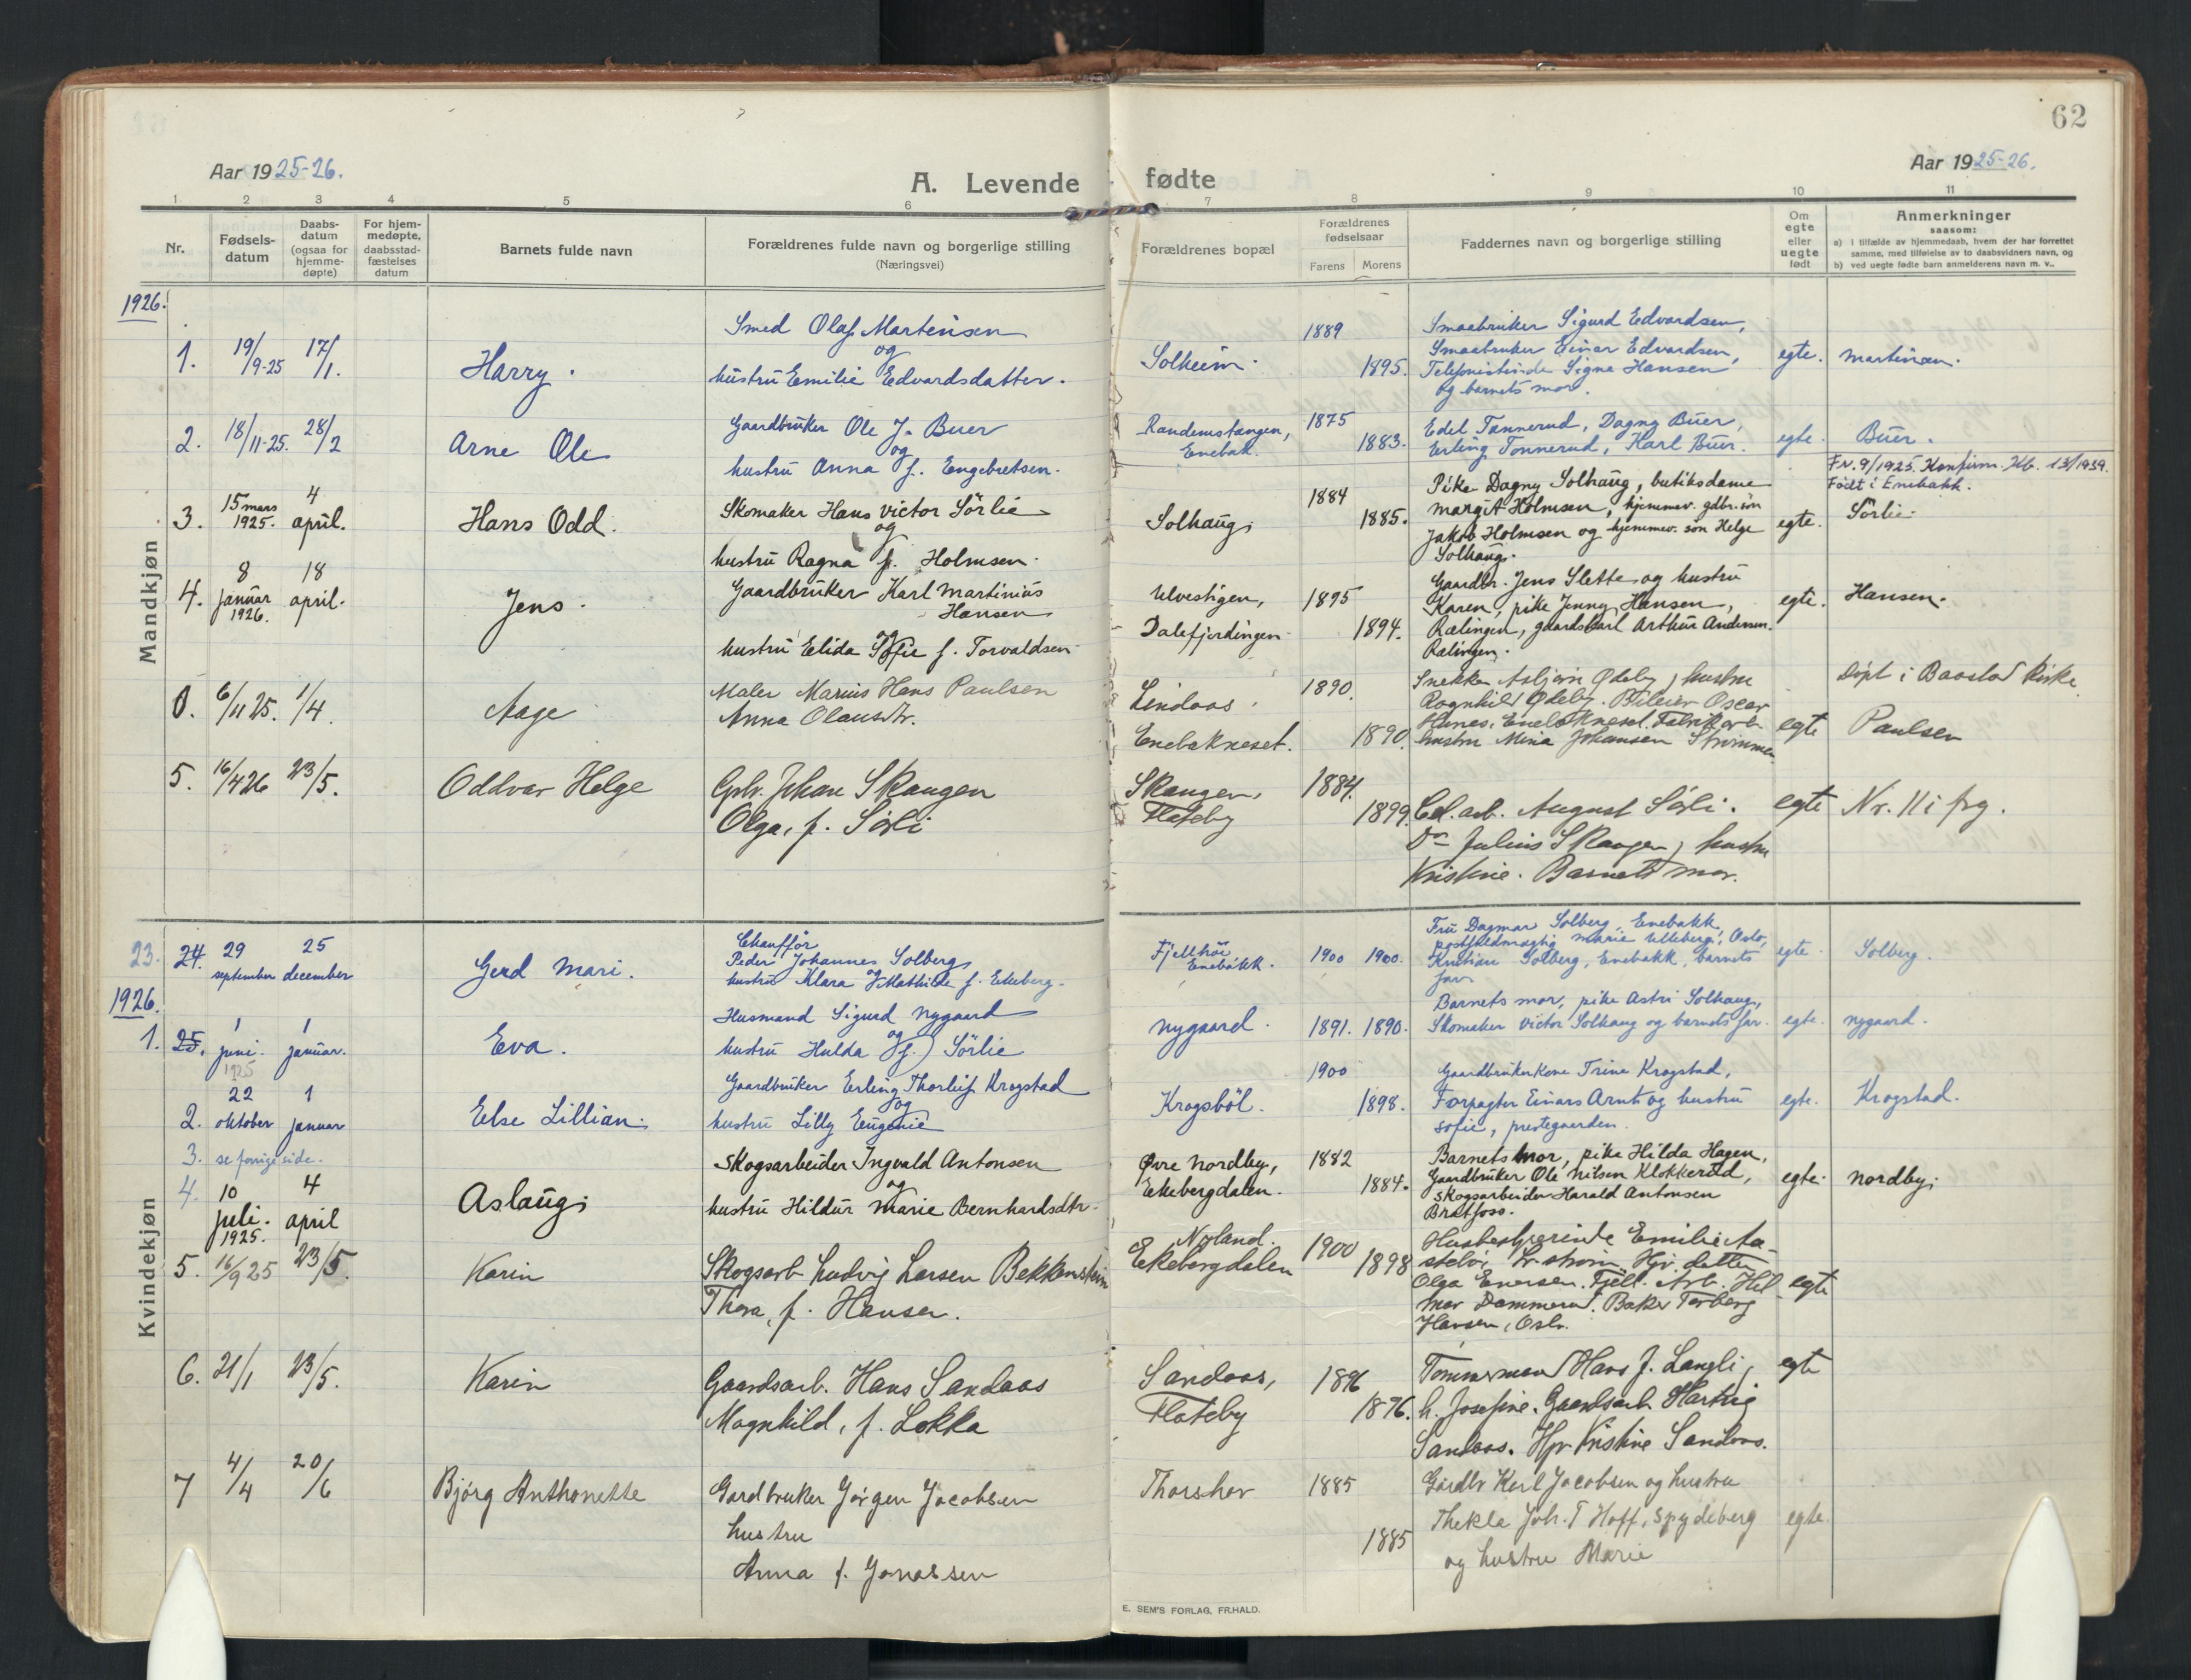 62
Aar 1925-26.
A. Levende fødte
Aar 1925-26.
1 2 3 4 5 6 7 8 9 10 11
Nr.
Fødsels-
datum
Daabs-
datum
(ogsaa for
hjemme-
døpte)
For hjem-
medøpte,
daabsstad-
fæstelses
datum
Barnets fulde navn
Forældrenes fulde navn og borgerlige stilling
(Næringsvei)
Forældrenes bopæl
Forældrenes
fødselsaar
Farens Morens
Faddernes navn og borgerlige stilling
Om
egte
eller
uegte
født
Anmerkninger
saasom:
a) i tilfælde av hjemmedaab, hvem der har forrettet
samme, med tilføielse av to daabsvidners navn, og
b) ved uegte fødte barn anmelderens navn m. v..
Mandkjøn
1926.
1. 19/9-25 17/1. Harry.
Smed Olaf Martensen
og
hustru Emilie Edvardsdatter.
Solheim. 1889 1895.
Smaabruker Sigurd Edvardsen,
Smaabruker Einar Edvardsen,
Telefonistinde Signe Hansen
og barnets mor.
egte. Martinsen.
2. 18/11-25. 28/2 Arne Ole
Gaardbruker Ole J. Buer
og
hustru Anna f. Engebretsen.
Randemstangen,
Enebak.
1875 1883.
Edel Tonnerud, Dagny Buer,
Erling Tonnerud, Karl Buer.
egte. Buer.
Fv. 9/1925. Konfirm. Kb. 13/1939.
Født i Enebakk.
3. 15 mars 1925. 4 april. Hans Odd.
Skomaker Hans Victor Sörlie
og
hustru Ragna f. Holmsen.
Solhaug. 1884 1885.
Pike Dagny Solhaug, butiksdame
Margit Holmsen, hjemmev. gdbr. søn
Jakob Holmsen og hjemmev. søn Helge
Solhaug.
egte. Sörlie.
4. 8 januar 1926. 18 april. Jens.
Gaardbruker Karl Martinius
Hansen
og
hustru Elida Sofie f. Torvaldsen
Ulvestigen,
Dalefjerdingen.
1895 1894.
Gaardbr. Jens Slette og hustru
Karen, pike Jenny Hansen,
Rælingen, gaardskarl Arthur Andersen.
Rælingen.
egte. Hansen.
0. 6/11 25. 1/4. Aage
Maler Marius Hans Paulsen
Anna Olausdtr.
Lindaas.
Enebakneset.
1890. 1890.
Snekker Asbjørn Ødeby, hustru
Ragnhild Ødeby. Bileier Oscar
Hanes, Enebakneset. Fabrikarb.
hustru Mina Johansen Strømmen
egte
Døpt i Baastad kirke.
Paulsen
5. 16/4 26 23/5. Oddvar Helge
Gbr. Johan Skaugen
Olga, f. Sörli
Skaugen,
Flateby
1884. 1899.
Cel. arb. August Sörli.
Do Julius Skaugen, hustru
Kristine. Barnets mor.
egte Nr. 11 i frg.
Kvindekjøn
23. 24. 29 september 25 december Gerd Mari.
Chauffør
Peder Johannes Solberg
og
hustru Klara Mathilde f. Ekeberg.
Fjellhøi
Enebakk.
1900 1900.
Fru Dagmar Solberg, Enebakk,
postfuldmægtig Marie Ulleberg, Oslo,
Kristian Solberg, Enebakk, barnets
far.
egte. Solberg.
1926.
1. 25. 1 juni. 1925 1 januar. Eva.
Husmand Sigurd Nygaard
og
hustru Hulda (f.) Sörlie
Nygaard. 1891. 1890.
Barnets mor, pike Astri Solhaug,
Skomaker Victor Solhaug og barnets far.
egte. Nygaard.
2. 22 oktober 1 januar Else Lillian.
Gaardbruker Erling Thorleif Krogstad
og
hustru Lilly Eugenie
Krogsböl. 1900 1898.
Gaardbrukerkone Trine Krogstad,
Forpagter Einars Arnt og hustru
Sofie, prestegaarden.
egte. Krogstad.
3. se forrige side.
4. 10 juli. 1925. 4 april Aslaug.
Skogsarbeider Ingvald Antonsen
og
hustru Hildur Marie Bernhardsdtr.
Øvre Nordby,
Ekebergdalen.
1882 1884.
Barnets mor, pike Hilda Hagen,
Gaardbruker Ole Nilsen Klokkerud,
Skogsarbeider Harald Antonsen
Bratfoss.
egte. Nordby.
5. 16/9 25 23/5. Karin
Skogsarb Ludvig Larsen Bekkensten
Thora, f. Hansen.
Nyland.
Ekebergdalen
1900 1898
Husbestyrerinde Emilie Aa-
Hjv. datter
Olga Enersen. Fjell. Arb. Hil-
mar Dammerud. Baker Torberg
Hansen, Oslo.
egte
6. 21/1 23/5. Karin
Gaardsarb. Hans Sandaas
Magnhild, f. Løkka
Sandaas,
Flateby
1896 1876.
Tømmermand Hans J. Langli,
h. Josefine. Gaardsarb. Hartvig
Sandaas. Hjv Kristine Sandaas.
egte
7 4/4 20/6 Bjørg Anthonette
Gardbruker Jørgen Jacobsen
hustru
Anna f. Jonassen
Thorshov 1885 1885
Gårdbr Karl Jacobsen og hustru
Thekla Joh. T Hoff, Spydeberg
og hustru Marie
egte.
E. SEM'S FORLAG, FR.HALD.